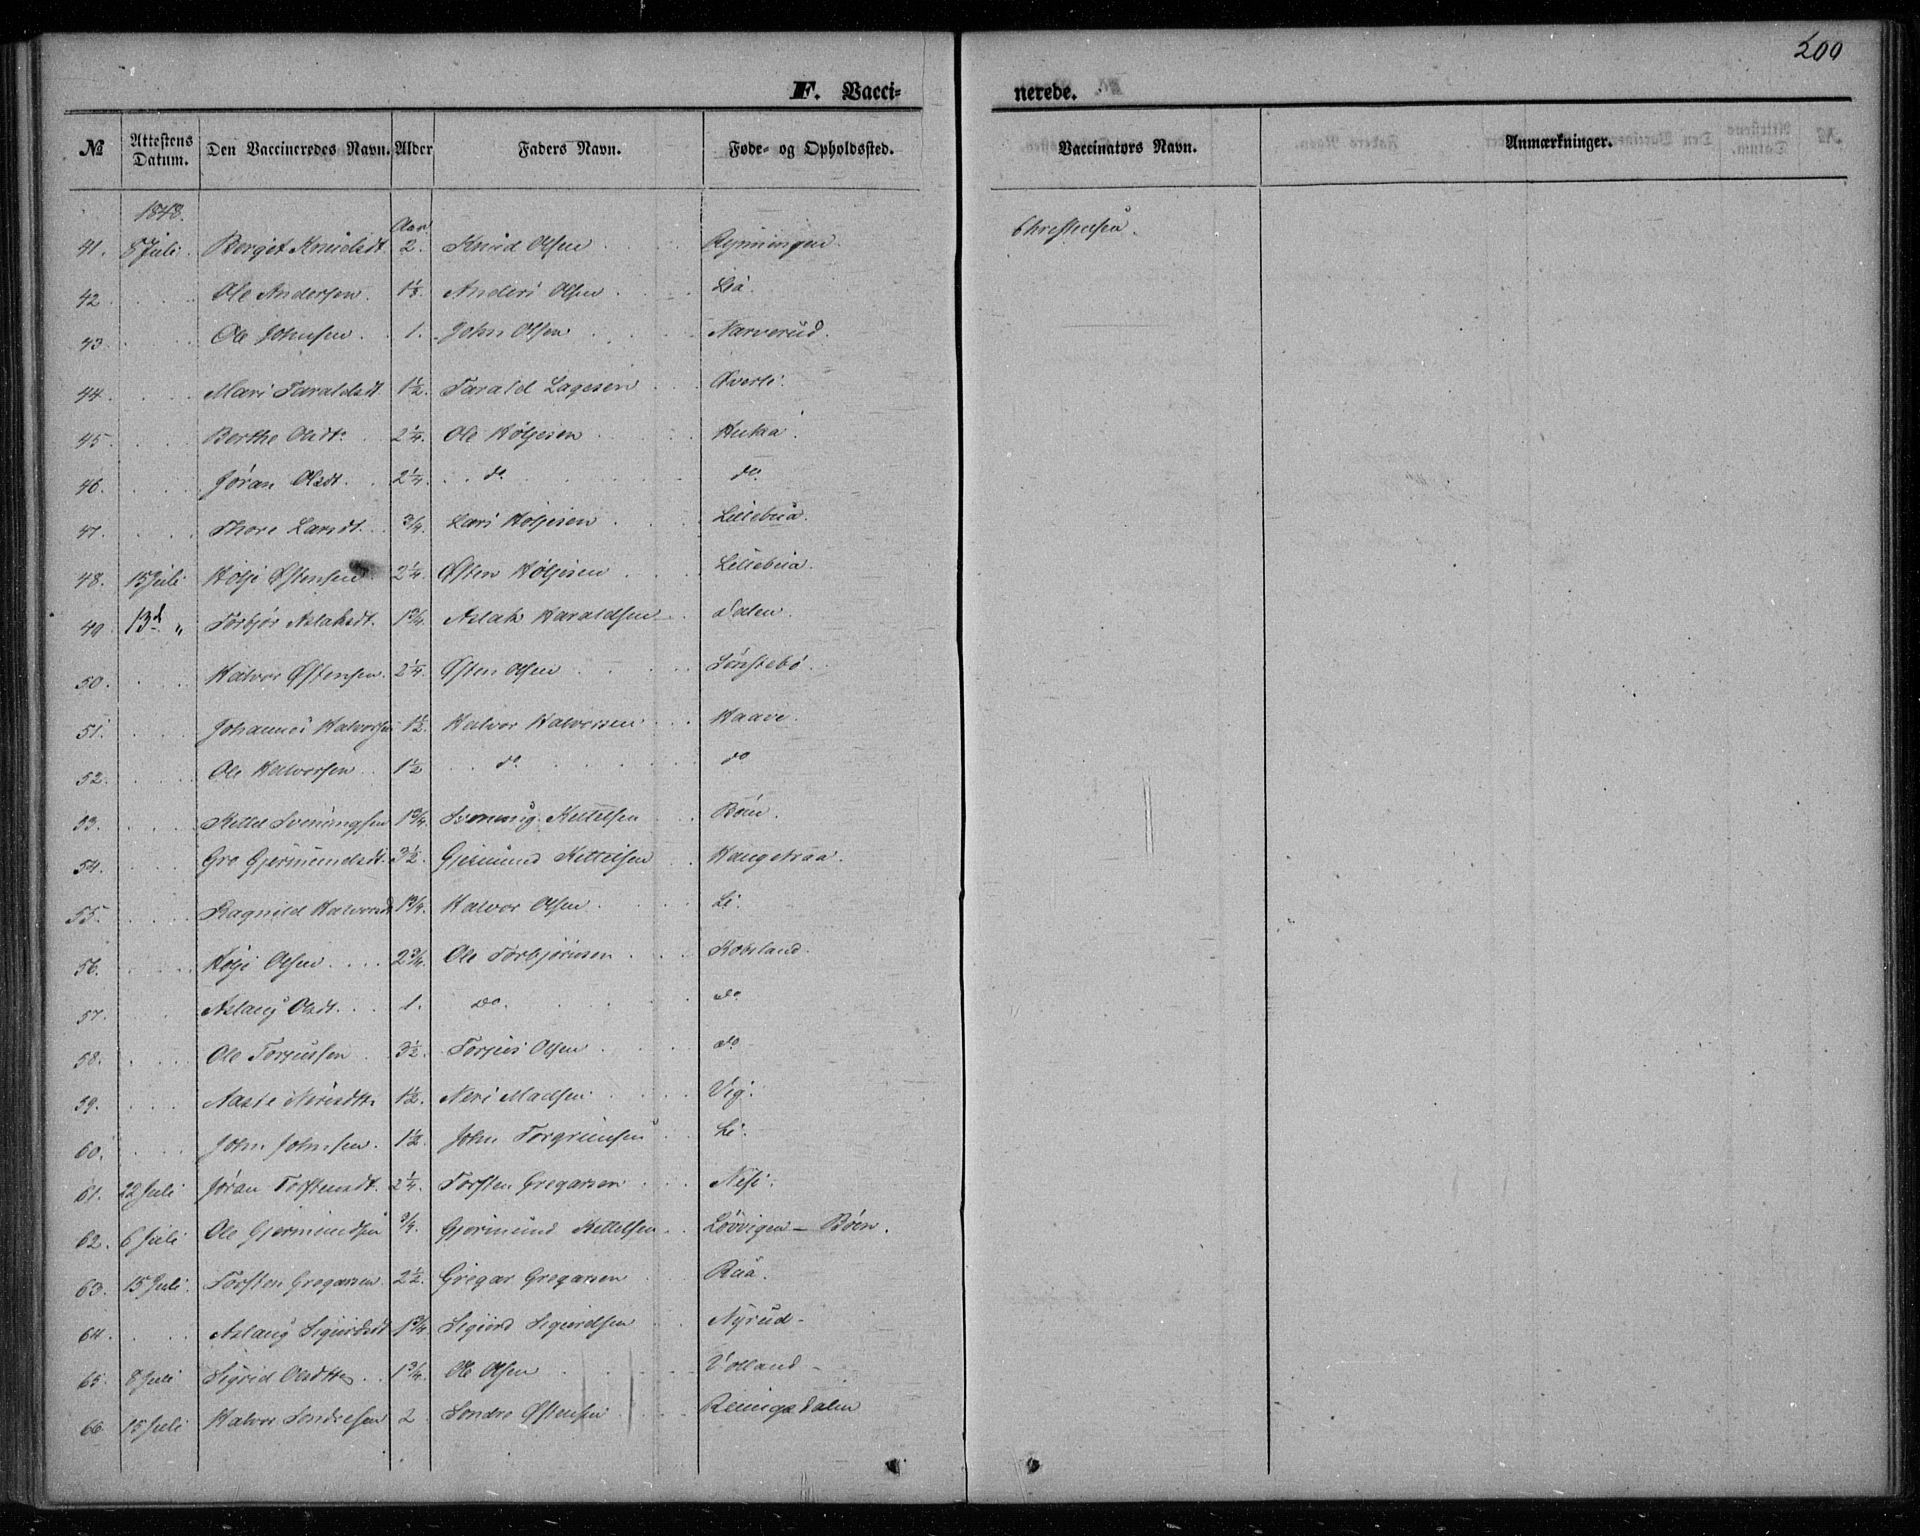 200
F. Vacci= nerede.
№ Attestens Datum. Den Vaccineredes Navn. Alder Faders Navn. Føde- og Opholdssted. Vaccinators Navn. Anmærkninger.
1848. Aar
41. 8 Juli Berget Knudsdt. 2. Knud Olsen Rynningen Christensen
42 Ole Andersen. Anders Olsen Lia.
43 Ole Johnsen 1. John Olsen Narverud.
44 Mari Taraldsdt. 1½. Tarald Lagesen Øverli.
45 Berthe Olsdt. 2¼. Ole Høljesen
46. Jøran Olsdt. 2¼. do do.
47. Thore Larsdt. ¾. Lars Høljesen Lillebua.
48. 15 Juli Hølje Østensen 2¼. Østen Høljesen Lillebua.
49 13d " Torbjør Aslaksdt. 1¾. Aslak Haraldsen Dalen.
50. Halvor Østensen. 2¼. Østen Olsen Lønstebø.
51. Johannes Halvorsen 1½. Halvor Halvorsen Haave.
52. Ole Halvorsen 1½ do do
53. Kettel Sveningsen 1¾. Svening Kettelsen Bøen.
54. Gro Gjermundsdt. 3½. Gjermund Kettelsen
55. Ragnild Halvorsd 1¾. Halvor Olsen Li.
56. Hølje Olsen 2¾. Ole Torbjørnsen
57. Aslaug Olsdt. 1. do. do
58. Ole Torjussen 3½. Torjus Olsen do
59. Aaste Nerisdtr. 1½. Neri Madsen Vig.
60. John Johnsen. 1½. John Torgrimsen Li.
61. 22 Juli Jøran Torstensdt. 2¼. Torsten Gregarsen Nese.
62. 6 Juli Ole Gjermundsen ¾. Gjermund Kettelsen Løvvigen - Bøen.
63. 15 Juli Torsten Gregarsen 2½. Gregar Gregarsen Rua.
64. Aslaug Sigurdsdt 1¾ Sigurd Sigurdsen Nyrud
65. 8 Juli Sigrid Olsdtter 1¾. Ole Olsen Volland
66. 15 Juli Halvor Sondresen 2 Sondre Østensen